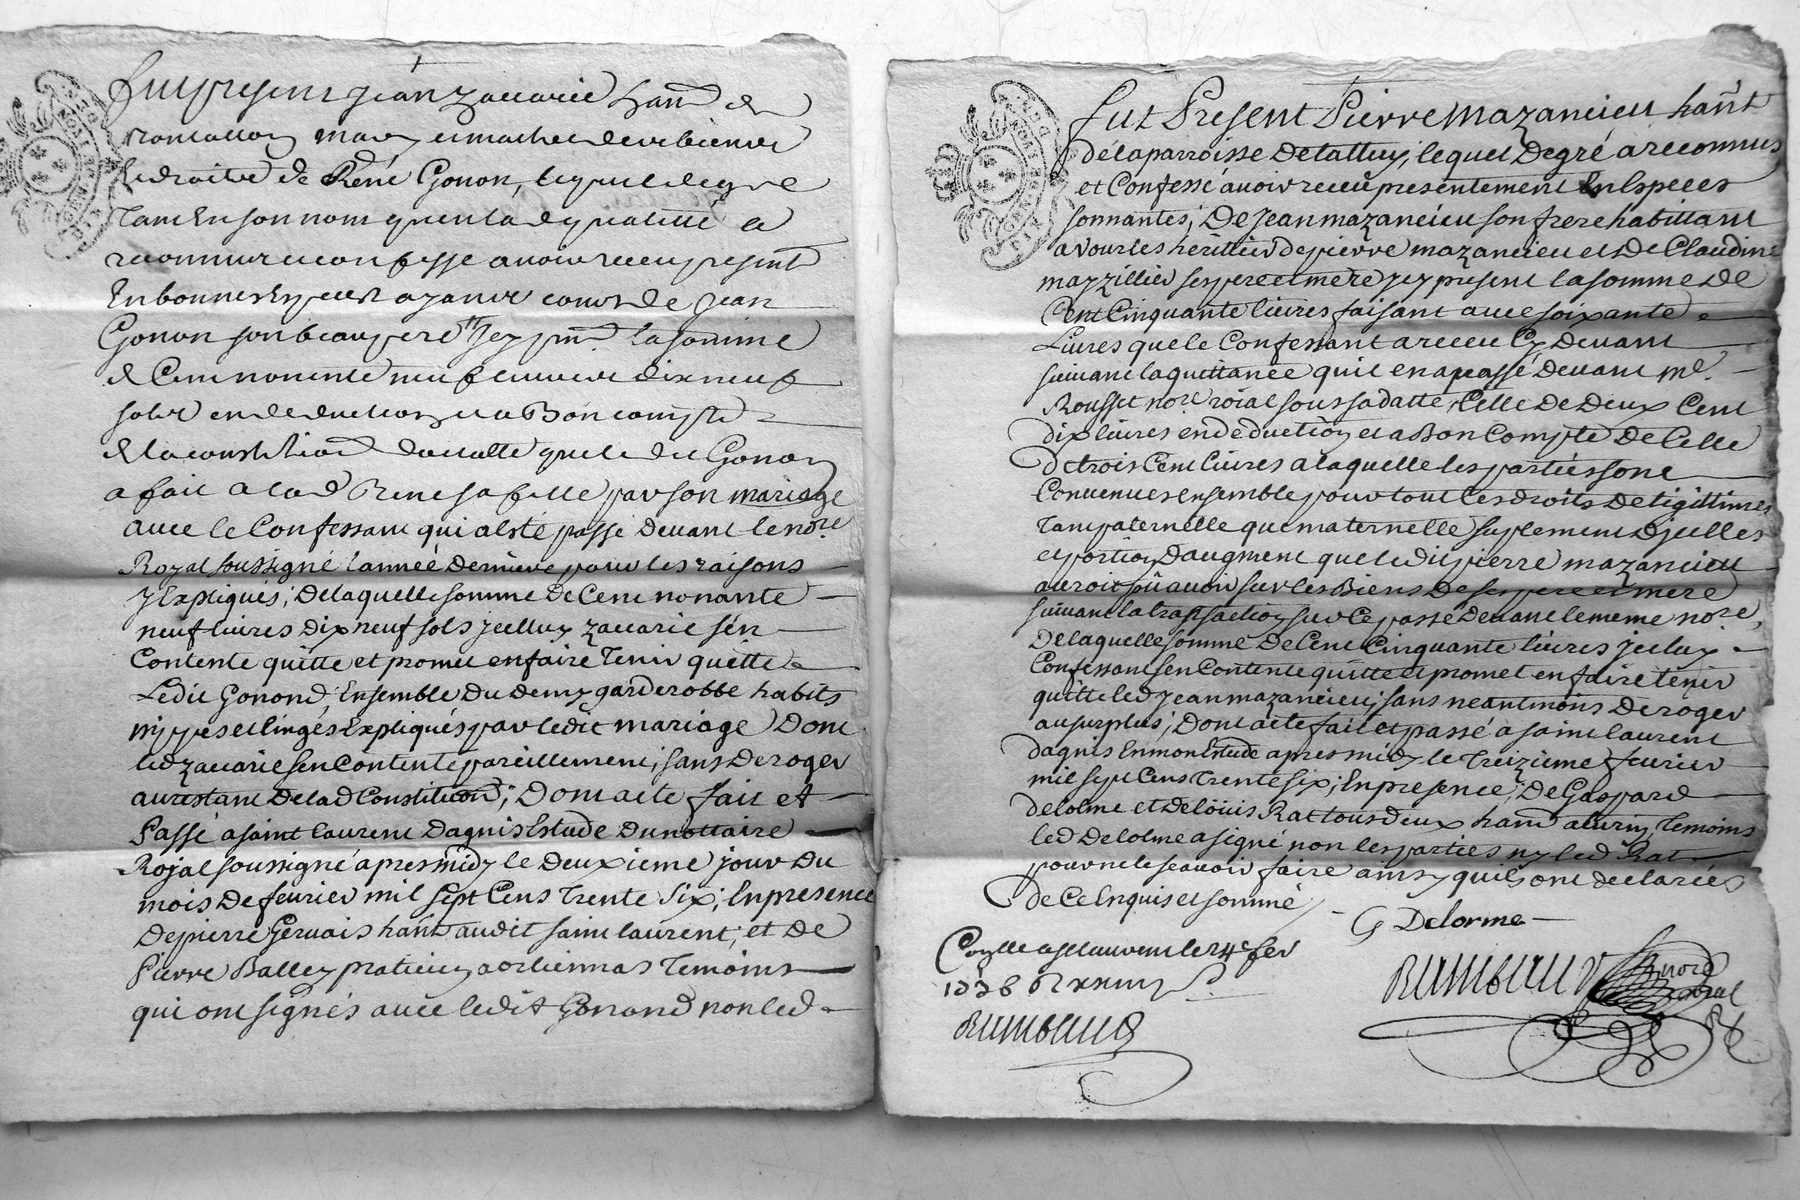 fut present Jean Zacarie hant de
mary et maitre de ses biens
et droits de René Gonon, lequel de gre
Tant En son nom qu'en lad qualitté a
reconnu et confesse avoir receu présent
En bonnes Especes ayant cours de Jean
Gonon son beaupere Jcy pnt la somme
de Cent nonente neuf livres dix neuf
sols en deduction et a Bon compte
de la constitution dotalle que led Gonon
a fait a lad Rene sa fille par son mariage
avec le Confessant qui a esté passé devant le nore
Royal soussigné l'année derniere pour les raisons
y Expliqués, De laquelle somme de Cent nonante
neuf livres dix neuf sols jcelluy Zacarie sen
Contente quitte et promet en faire Tenir quitte
Ledit Gonond, Ensemble Du Demy garderobbe habits
nippes et linges Expliqués par ledit mariage Dont
led Zacarie sen Contente pareillement, sans Deroger
au restant De lad Constitution; Dont acte fait et
Passé a saint laurent Dagnis Estude Du nottaire
Royal soussigné apres midy le Deuxieme jour Du
mois De fevrier mil sept Cens Trente six; En presence
De pierre Gervais hant audit saint laurent; et De
Pierre Balley praticien a Temoins
qui ont signés avec ledit Gonond non led
fut Present Pierre Mazancieu hant
de la parroisse De taluy, lequel De gré a reconnus
et Confessé avoir receu presentement En Especes
sonnantes, De Jean mazancieu son frere habittant
a vourles heritier de pierre mazancieu et De Claudine
mazzillier ses pere et mere jcy present la somme De
Cent Cinquante livres faisant avec soixante
Livres que le Confessant a receu Cy Devant
suivant la quittance qu'il en a passé Devant me
Rousset nore roial sous sa datte, Celle De Deux Cent
dix livres en deduction et a Bon Compte De Celle
de trois Cent livres a laquelle les parties sont
Convenues ensemble pour tout les droits De legittimes
Tant paternelle que maternelle suplement Djcelles
et portion Daugment que ledit pierre mazancieu
auroit pu avoir sur les Biens De ses pere et mere
suivant la transaction sur Ce passé Devant le meme nore,
De laquelle somme De Cent Cinquante livres jceluy
Confessant sen Contente quitte et promet en faire tenir
quitte led Jean mazancieu; sans neantmoins Deroger
au surplus; Dont acte fait et passé a saint laurent
dagnis En mon Estude apres midy le Treizieme fevrier
mil sept Cens Trente six; En presence, De Gaspard
delolme et De loüis Rat tous deux hant a Temoins
led Delolme a signé non les parties ny led Rat
pour ne le scavoir faire ainsy quils ont declarés
De Ce Enquis et sommé
G Delorme
Con.lle a st laurent le 24e fev
1736